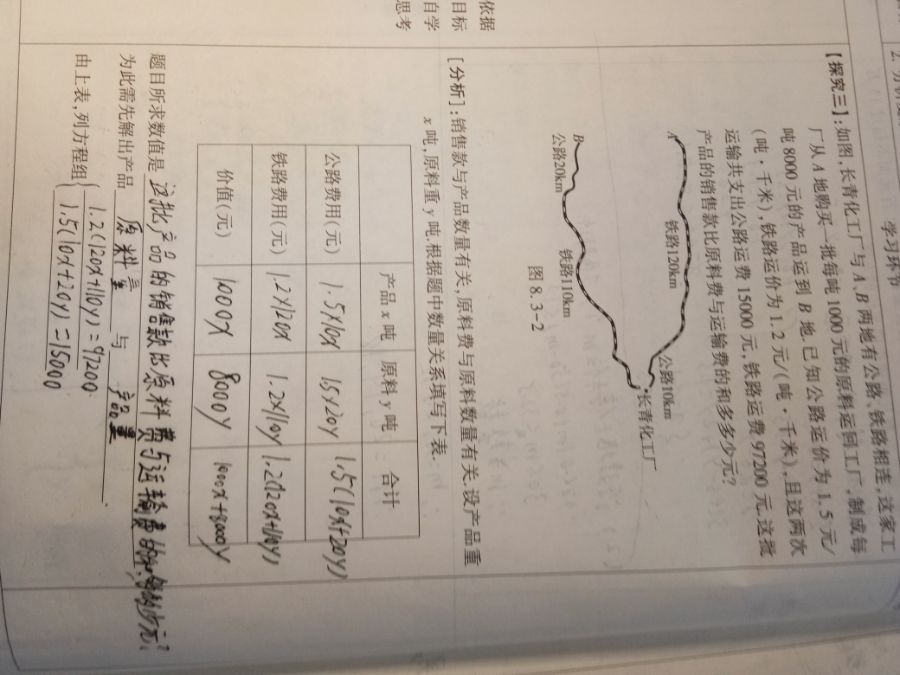 学习环节
【探究三】:如图,长青化工厂与 A、B 两地有公路、铁路相连,这家工
厂从 A 地购买一批每吨 1000 元的原料运回工厂,制成每
吨 8000 元的产品运到 B 地.已知公路运价为 1.5 元/
(吨·千米),铁路运价为 1.2 元/(吨·千米),且这两次
运输共支出公路运费 15000 元,铁路运费 97200 元.这批
产品的销售款比原料费与运输费的和多多少元?
A
铁路120km
公路10km
长青化工厂
B
公路20km
铁路110km
图 8.3-2
依据
目标
自学
思考
[分析]:销售款与产品数量有关,原料费与原料数量有关.设产品重
x 吨,原料重 y 吨.根据题中数量关系填写下表.
产品 x 吨 原料 y 吨 合计
公路费用(元) 1.5×10x 1.5×20y 1.5(10x+20y)
铁路费用(元) 1.2×120x 1.2×110y 1.2(120x+110y)
价值(元) 1000x 8000y 1000x+8000y
题目所求数值是 这批产品的销售款比原料费与运输费的和多多少元?
为此需先解出产品 原料量 与 产品量 .
由上表,列方程组 1.2(120x+110y)=97200
1.5(10x+20y)=15000